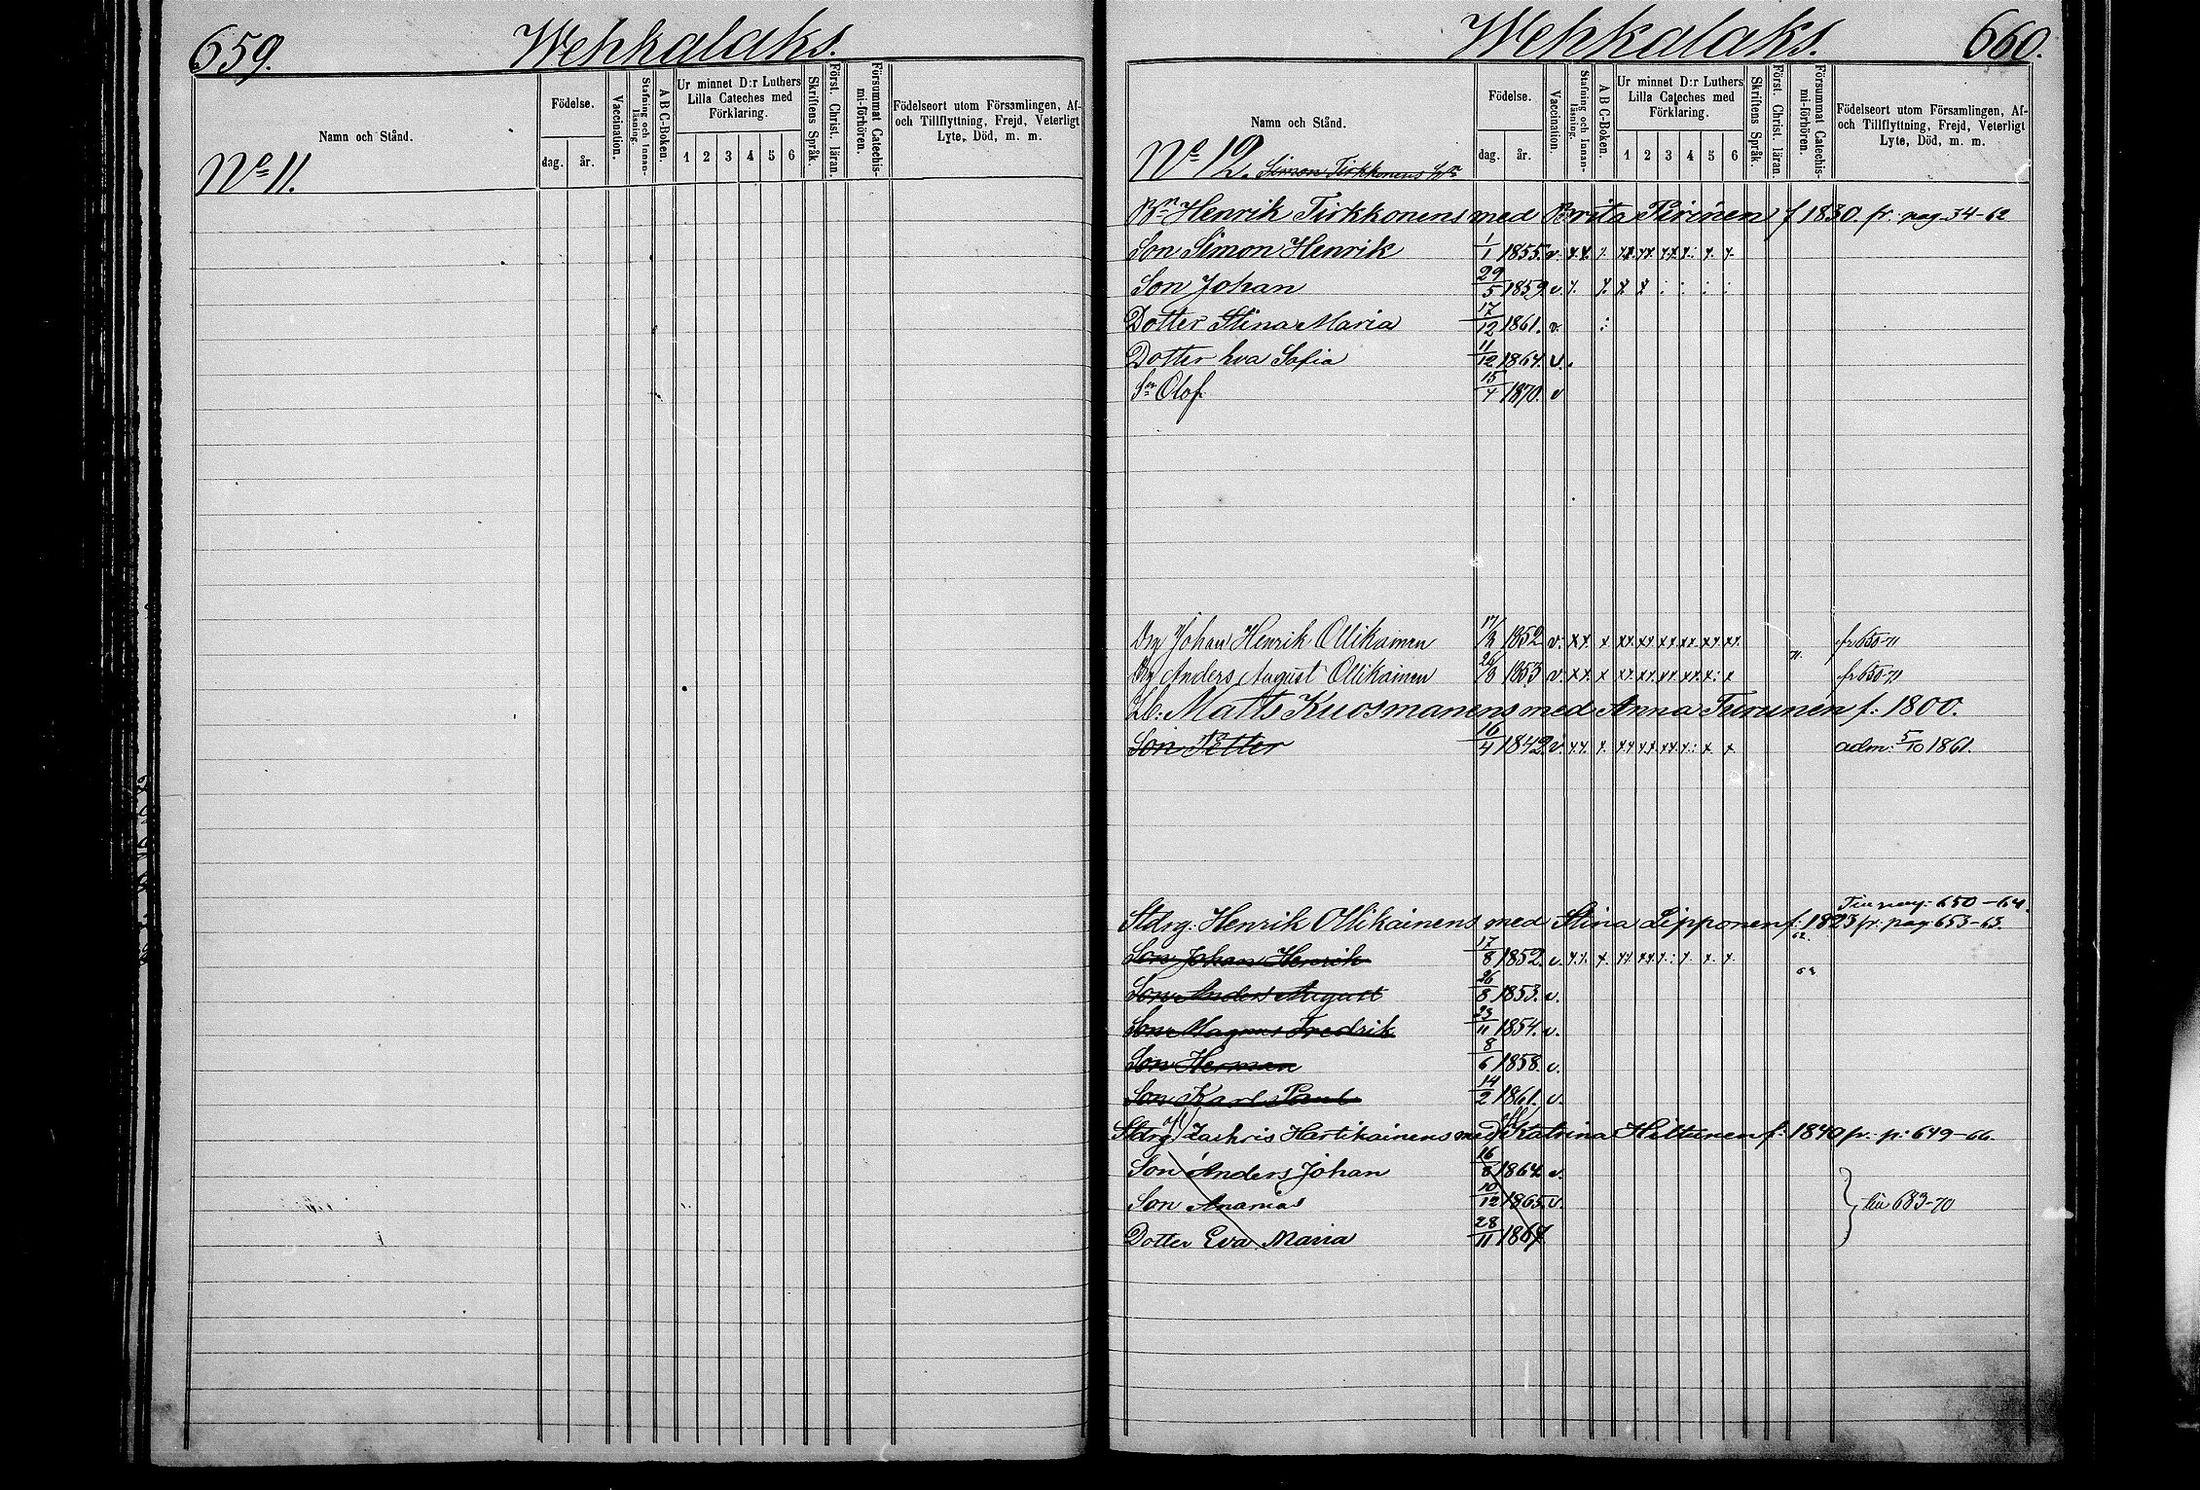 659. Wehkalaks.
Namn och Stånd.
Födelse.
dag. år.
Vaccination.
Stafning och Innan-läsning.
A B C-Boken.
Ur minnet D:r Luthers
Lilla Cateches med
Förklaring.
1 2 3 4 5 6
Skriftens Språk.
Först. Christ. läran.
Försummat Catechis-mi-förhören.
Födelseort utom Församlingen, Af-
och Tillflyttning, Frejd, Veterligt
Lyte, Död, m. m.
No 11.
Wehkalaks. 660.
Namn och Stånd.
Födelse.
dag. år.
Vaccination.
Stafning och Innan-läsning.
A B C-Boken.
Ur minnet D:r Luthers
Lilla Cateches med
Förklaring.
1 2 3 4 5 6
Skriftens Språk.
Först. Christ. läran.
Försummat Catechis-mi-förhören.
Födelseort utom Församlingen, Af-
och Tillflyttning, Frejd, Veterligt
Lyte, Död, m. m.
No 12. Simon Tirkkonens
Henrik Tirkkonens med Brita Pirinen f 1830. fr. pag. 34-62
Son Simon Henrik 1/1 1855. v. x x. x. xx xx xx x: x. x.
Son Johan 29/5 1859. v. x. x x x : : : :
Dotter Stina Maria 17/12 1861. v. :
Dotter Eva Sofia 11/12 1864. v.
Sn Olof 15/4 1870. v
Drg Johan Henrik Ollikainen 17/8 1852 v. xx x xx xx xx xx xx xx. fr 650-71
71.
Drg Anders August Ollikainen 26/8 1853 v. xx x xx xx xx xx x: x fr 650-71
Matts Kuosmanens med Anna Turunen f: 1800.
Son Petter 16/4 1842. v. xx. x. xx xx xx x: x x adm: 5/10 1861.
Till pag: 650-64.
Stdrg: Henrik Ollikainens med Stina Lipponen f: 1823 fr. pag 653-63.
62.
Son Johan Henrik 17/8 1852. v. xx. x. xx xx x: x. x. x.
Son Anders August 26/8 1853. v.
Son Magnus Fredrik 23/11 1854. v.
Son Herman 8/6 1858. v.
Son Karl Paul 14/2 1861. v.
Stdrg Zachris Hartikainens med Katrina Hiltunen f: 1840 fr: p: 649-66.
Son Anders Johan 16/8 1864 v.
Son Ananias 10/12 1865. v. till 683-70
Dotter Eva Maria 28/11 1867